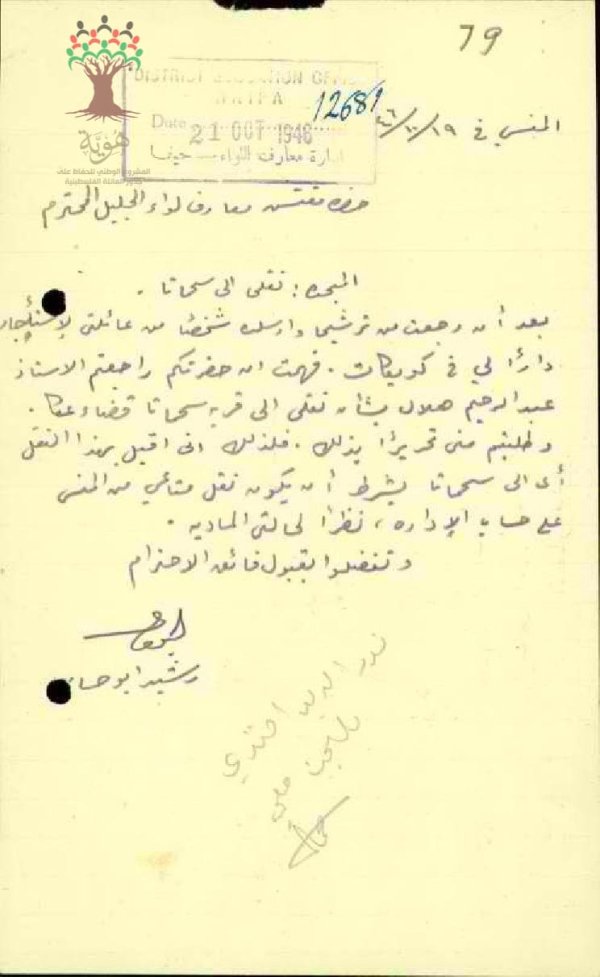 79
DISTRICT EDUCATION OFFICE
HAIFA
12681
Date 21 OCT 1946
ادارة معارف اللواء — حيفا
هُويَّة
المشروع الوطني للحفاظ على
جذور العائلة الفلسطينية
المنسي في ١٩/١٠/٤٦
حضرة مفتش معارف لواء الجليل المحترم
المبحث: نقلي الى سحماتا.
بعد أن رجعت من ترشيحا وارسلت شخصًا من عائلتي لإستأجار
دارًا لي في كويكات. فهمت ان حضرتكم راجعتم الاستاذ
عبد الرحيم هلال بشأن نقلي الى قرية سحماتا قضاء عكا.
وطلبتم مني تحريرًا بذلك. فلذلك اني اقبل بهذا النقل
أي الى سحماتا بشرط أن يكون نقل متاعي من المنسي
على حساب الإدارة، نظرًا لحالتي المادية.
وتفضلوا بقبول فائق الاحترام
رشيد ابو
نور الدين افندي